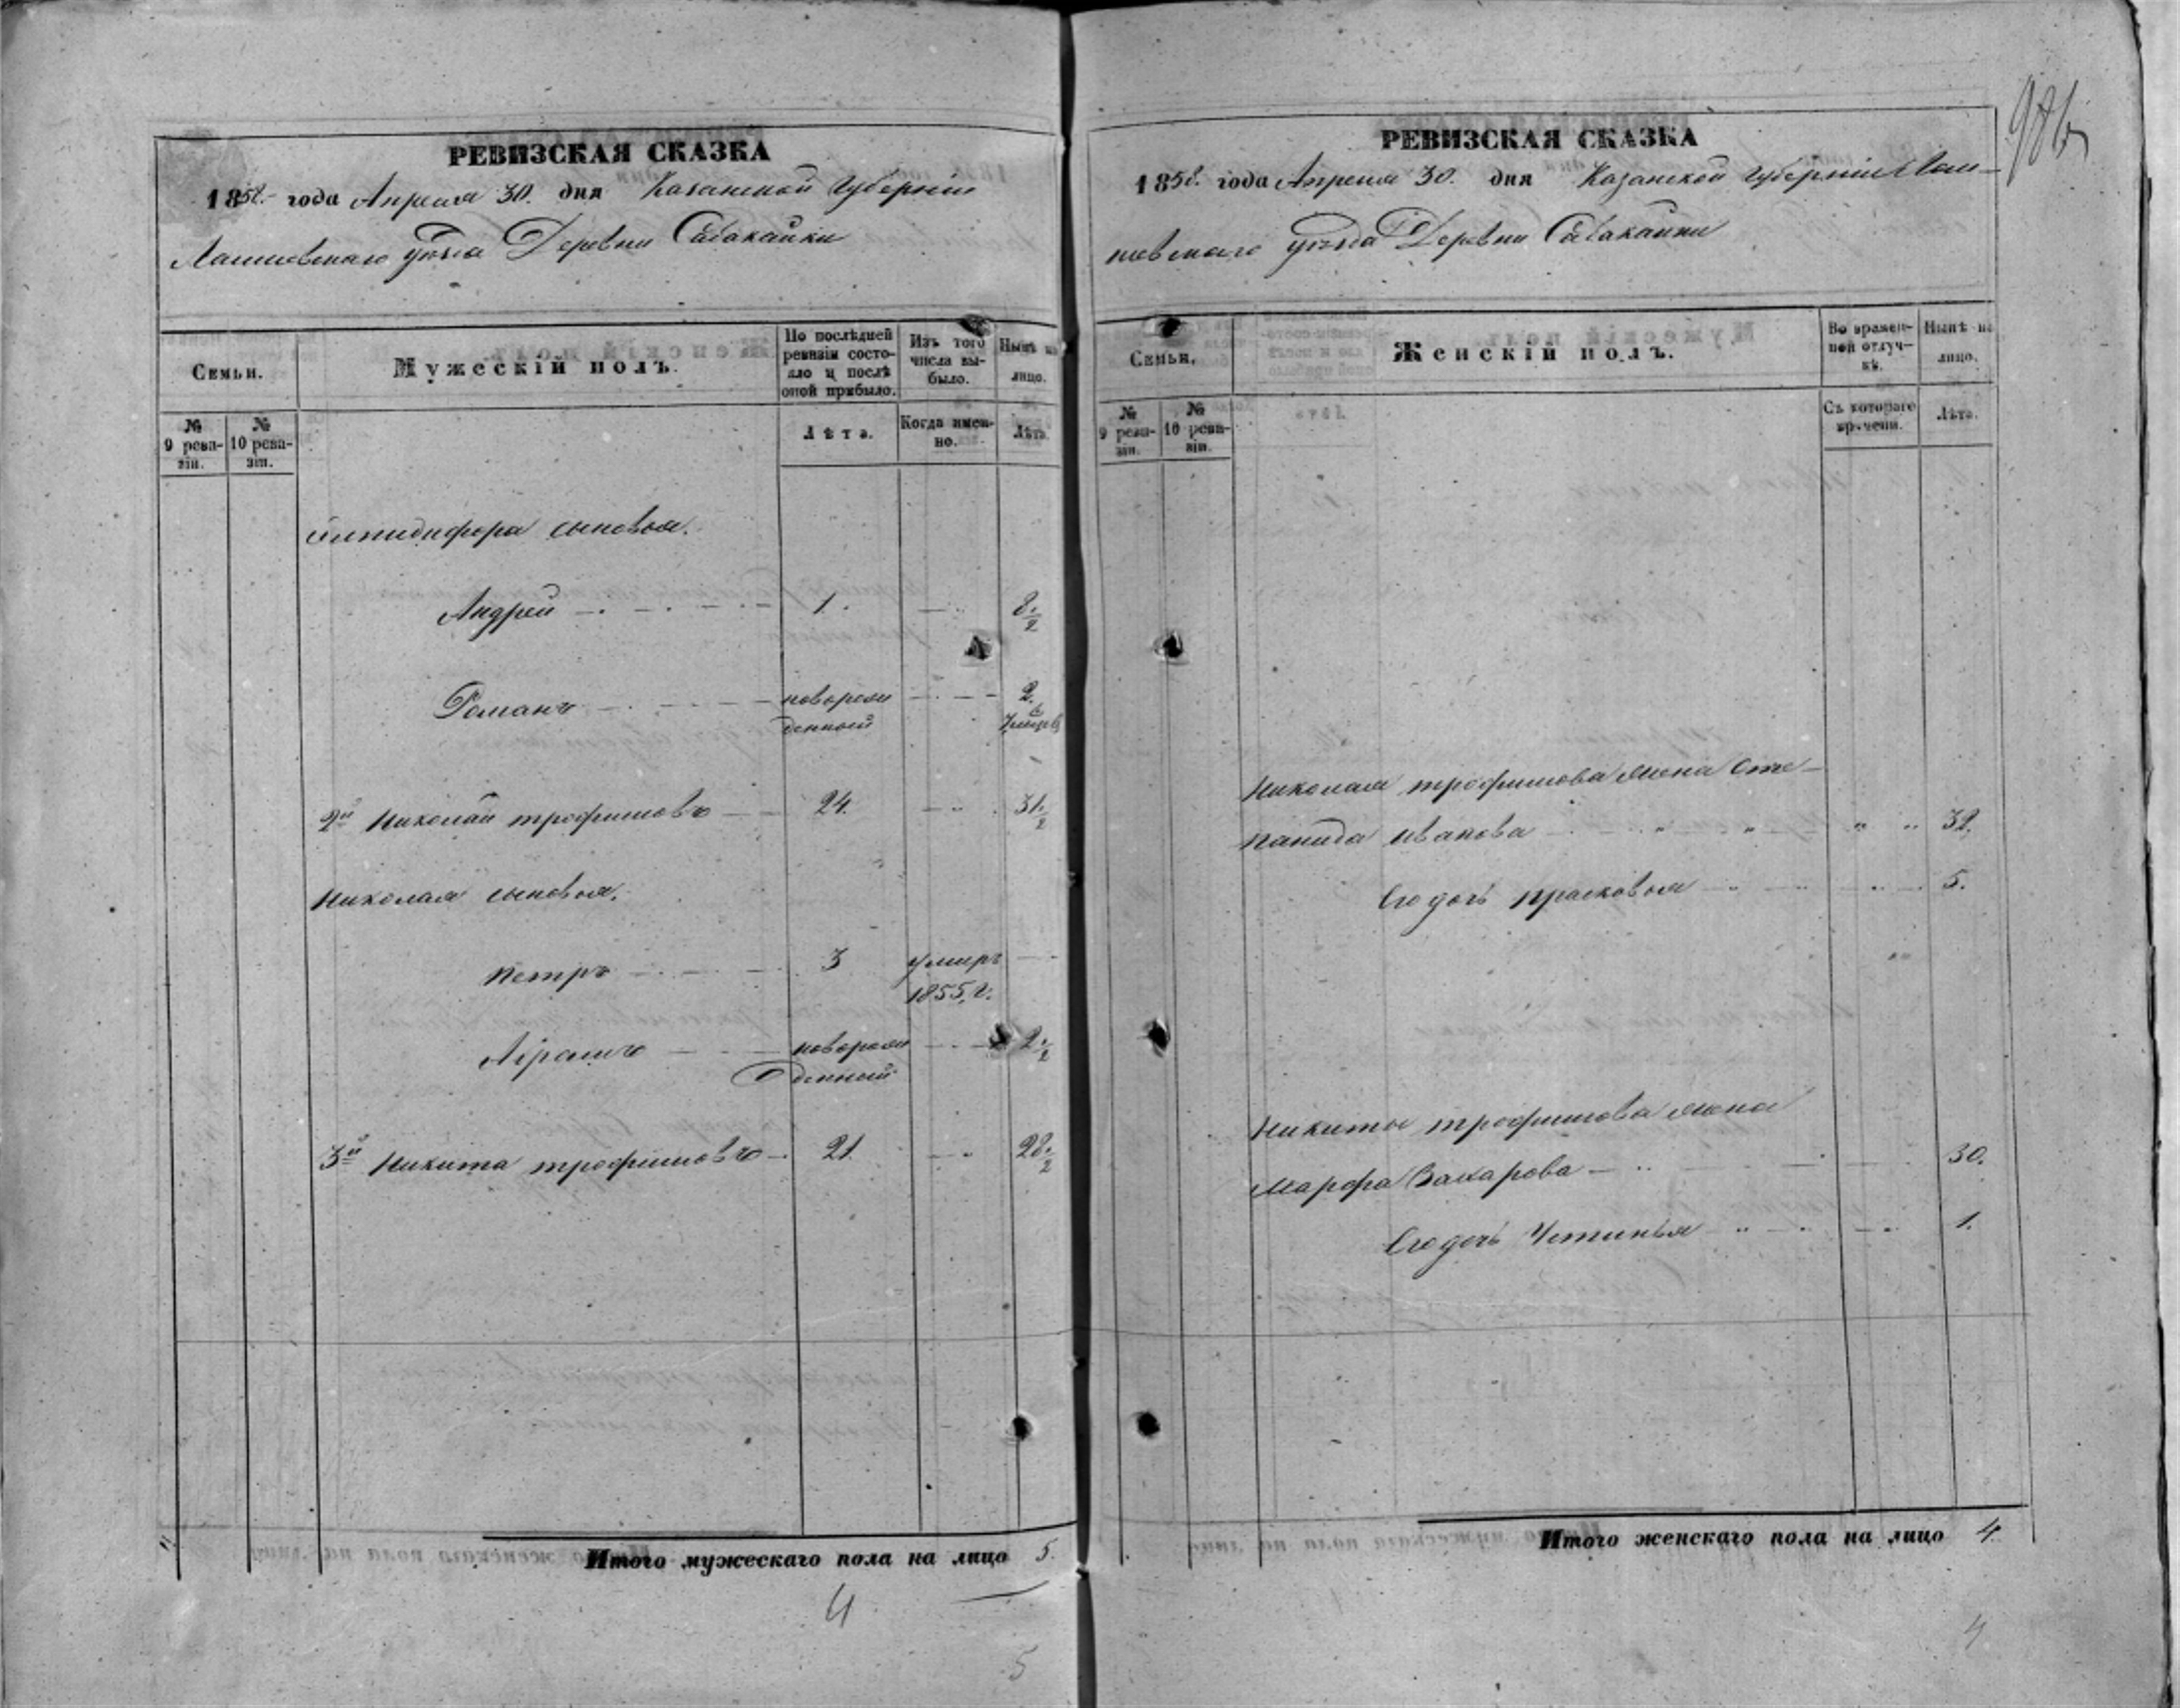 РЕВИЗСКАЯ СКАЗКА
1858 года Апреля 30. дня Казанской Губернiи
Лаишевскаго уѣзда Деревни Сабакайки
Семьи.
Мужескiй полъ.
По послѣдней ревизiи состояло и послѣ оной прибыло.
Изъ того числа выбыло.
Нынѣ на лицо.
№ 9 ревизiи.
№ 10 ревизiи.
Лѣта.
Когда именно.
Лѣта.
Елпидифора сыновья.
Андрей 1. 8 1/2
Романъ новорожденной 2.
2й Николай трофимовъ 24. 31 1/2
Николая сыновья.
Петръ 3 умеръ 1855. г.
новорожденный 2 1/2
3й Никита трофимовъ 21. 28 1/2
Итого мужескаго пола на лицо 5.
4
5
РЕВИЗСКАЯ СКАЗКА
1858. года Апреля 30. дня Казанской губернiи Лаи-
шевскаго уѣзда Деревни Сабакайки
Семьи.
Женскiй полъ.
Во временной отлучкѣ.
Нынѣ на лицо.
№ 9 ревизiи.
№ 10 ревизiи.
Съ котораго времени.
Лѣта.
Николая трофимова жена Сте-
панида иванова 32.
Его дочь прасковья 5.
Никиты трофимова жена
марфа Захарова 30.
Его дочь Устинья 1.
Итого женскаго пола на лицо 4.
4